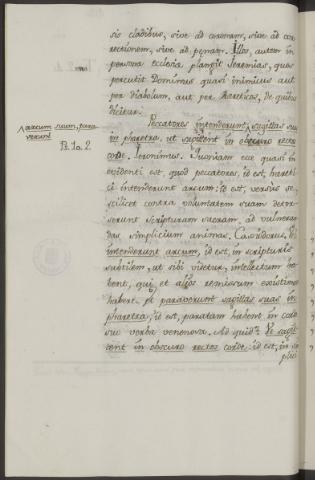 sis cladibus, sive ad coronam, sive ad cor
rectionem, sive ad penam. Illos, autem in
persona ecclesiæ plangit Jeremias, quos
percutit Dominus quasi inimicus aut
per Diabolum, aut per hæreticos, de quibus
dicitur.
Peccatores intenderunt sagittas suas
in pharetra, ut sagittent in obscuro rectos
corde. Jeronimus. Quoniam ecce quasi in
evidenti est, quod peccatores, id est, hæreti
ci intenderunt arcum: id est, versus se,
scilicet contra voluntatem suam detor
serunt Scripturam sacram, ad vulneran
das simplicium animas. Casiodorus. Vl
intenderunt arcum, id est, in scripturis
subtilem, ut sibi videtur, intellectum ha
bent, qui et alios remissum existimant
habere. et paraverunt sagittas suas in
pharetra, id est, paratam habent in cor
suo verba venenosa. Ad quid? Ut sagit
tent in obscuro rectos corde: id est, in sim
plici
arcum suum, para
verunt
Ps. 10. 2